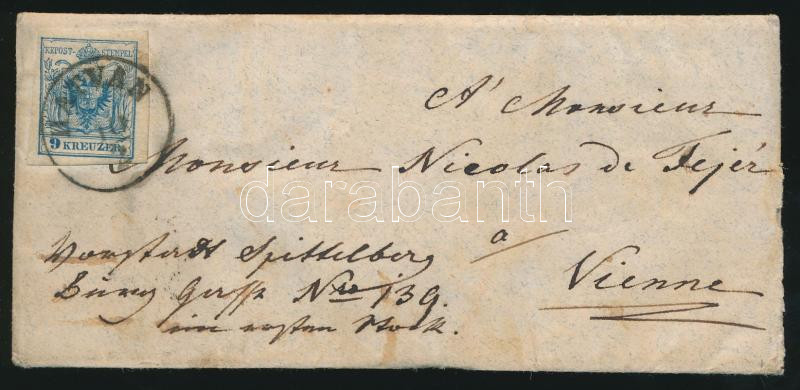 KKPOST-STEMPEL
9 KREUZER
A' Monsieur
Monsieur Nicolas de Fejér
a
Vienne
Vorstadt Spittelberg
Burg Gasse Nro 139.
im ersten Stock.
darabanth